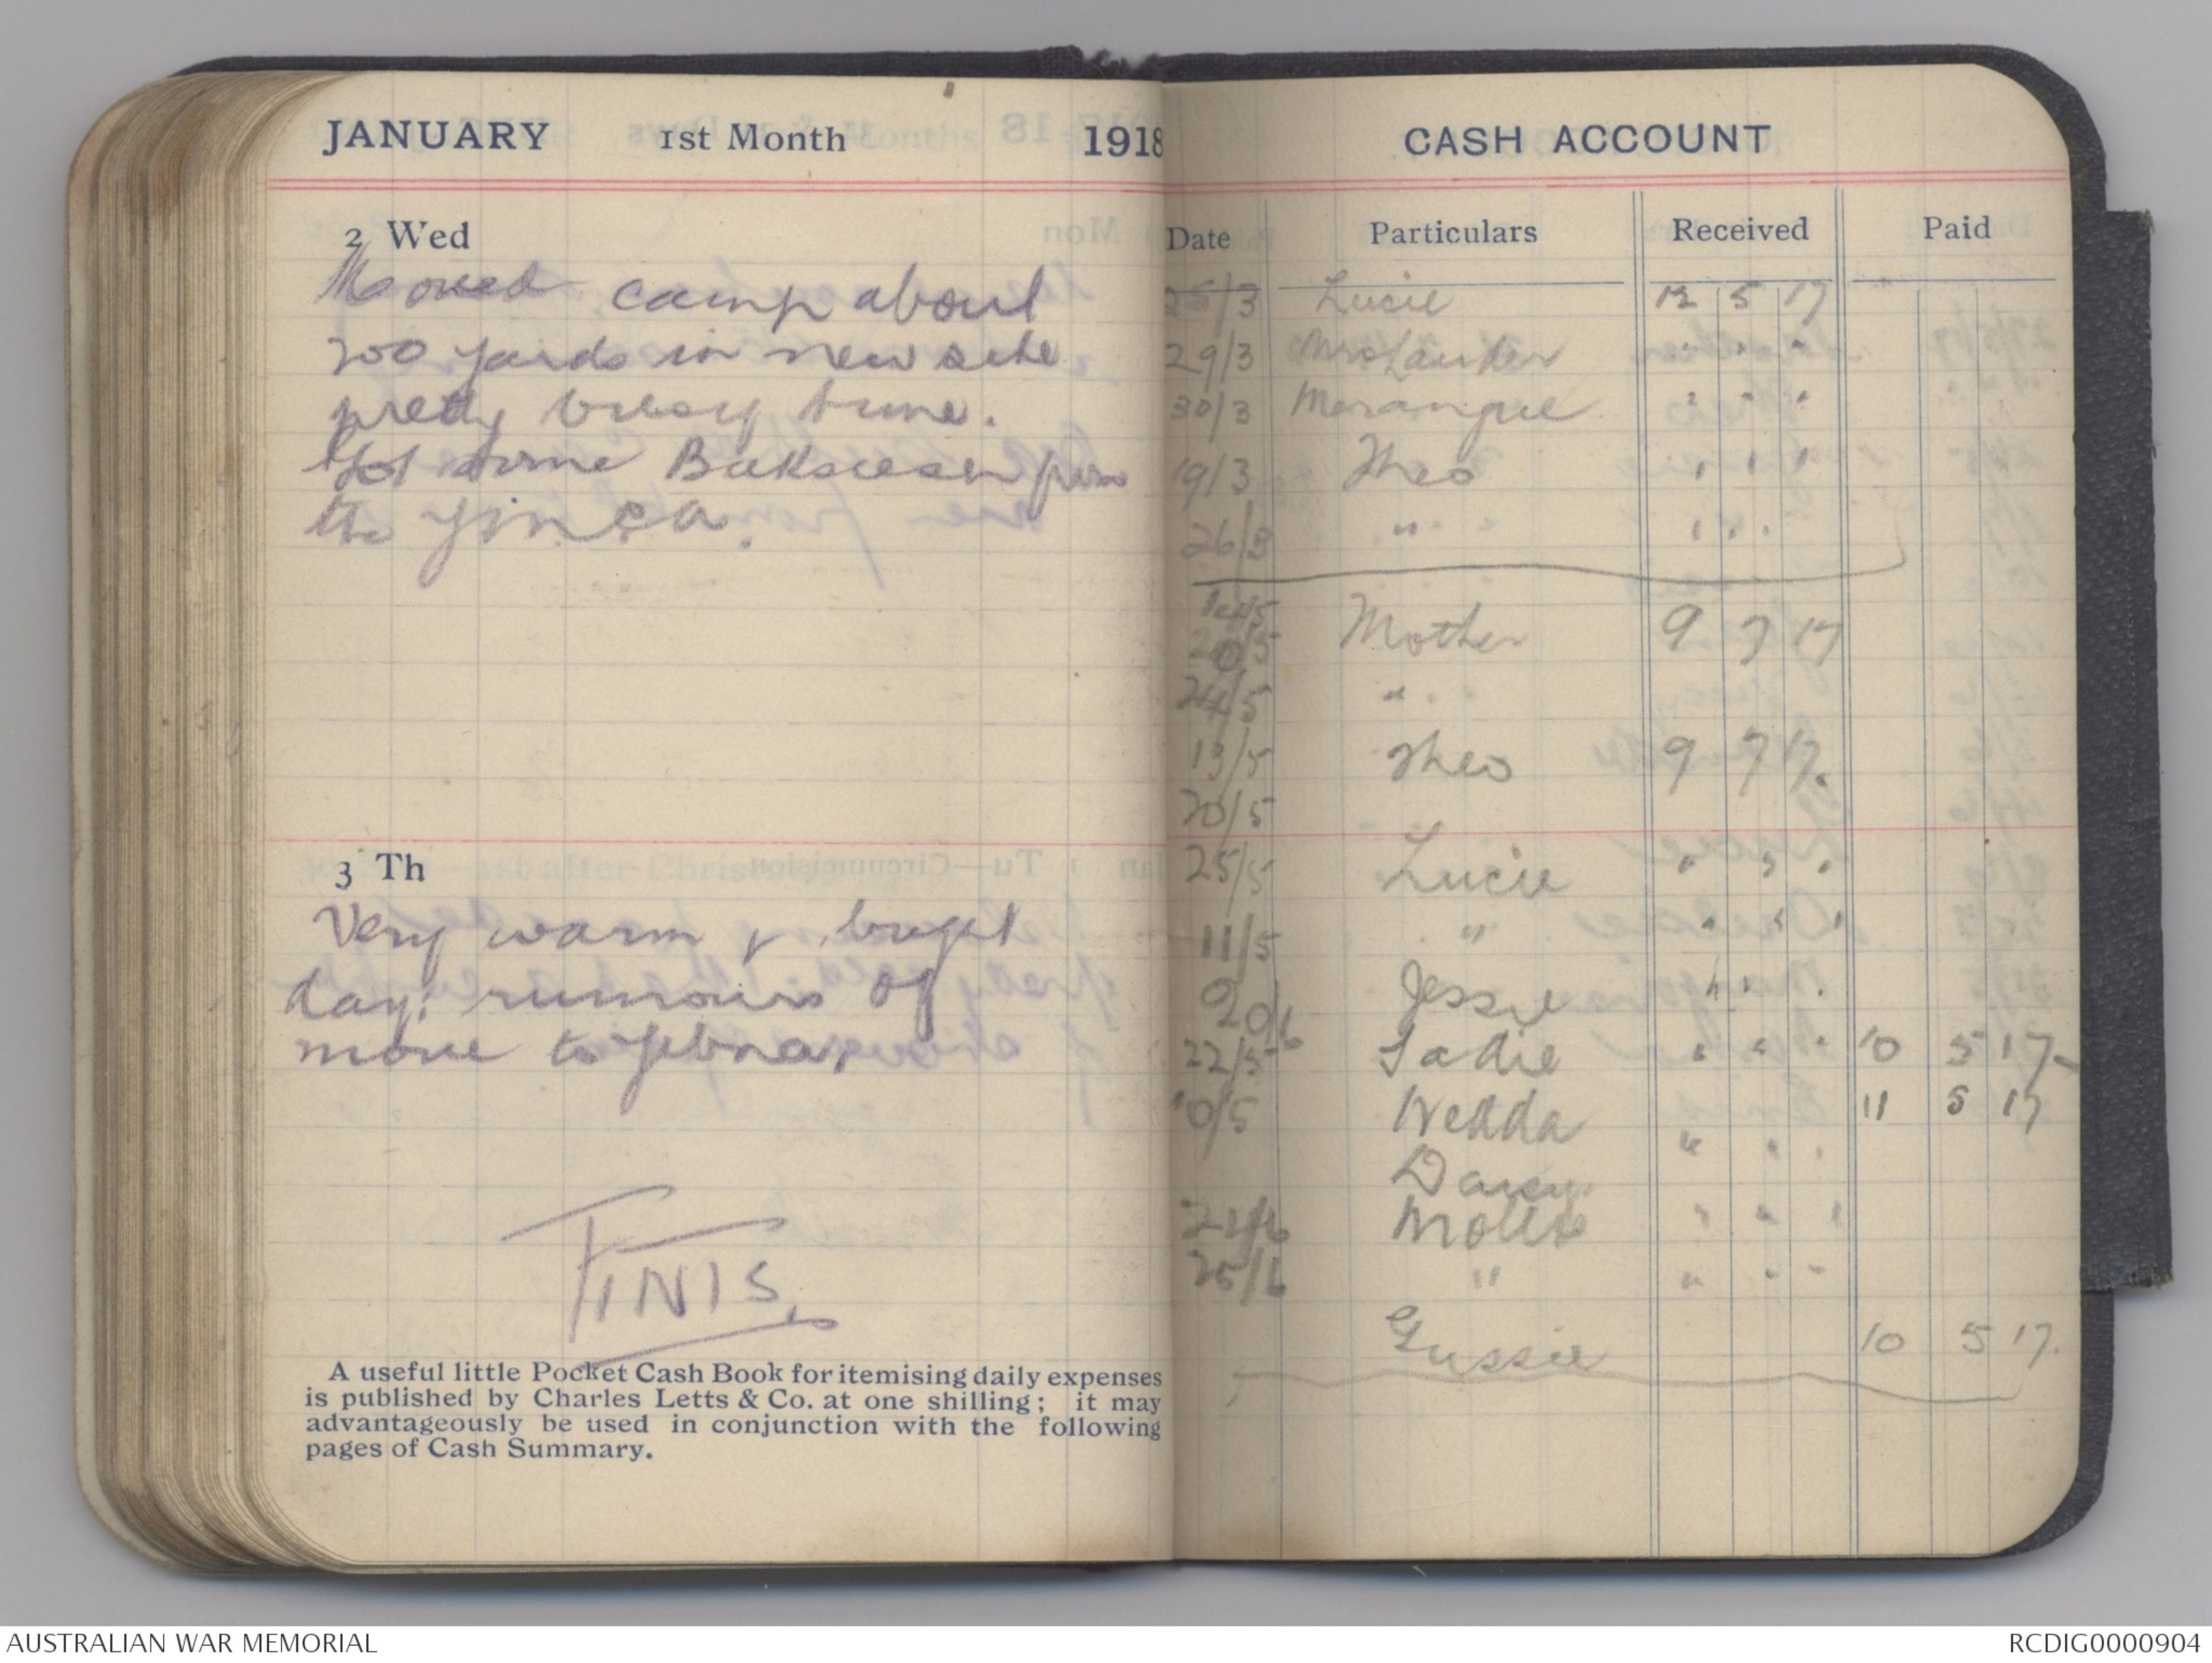 JANUARY 1st Month 1918
2 Wed
Moved camp about
200 yards in new site
pretty busy time.
Got some from
the
3 Th
Very warm & bright
day; rumours of
move to
FINIS.
A useful little Pocket Cash Book for itemising daily expenses
is published by Charles Letts & Co. at one shilling; it may
advantageously be used in conjunction with the following
pages of Cash Summary.
CASH ACCOUNT
Date Particulars Received Paid
25/3 Lucie 12 5 17
29/3 " " "
30/3 " " "
19/3 Theo " " "
26/3 " " " " "
14/5
20/5 Mother 9 7 17
24/5 " "
13/5 Theo 9 7 17.
20/5
25/5 Lucie " " "
11/5 " " " "
20/6 Jessie " " "
22/5 Sadie " " " 10 5 17
10/5 Hedda " " " 11 5 17
Darcy
21/6 Mollie " " "
25/6 " " " "
Gussie 10 5 17.
AUSTRALIAN WAR MEMORIAL RCDIG0000904